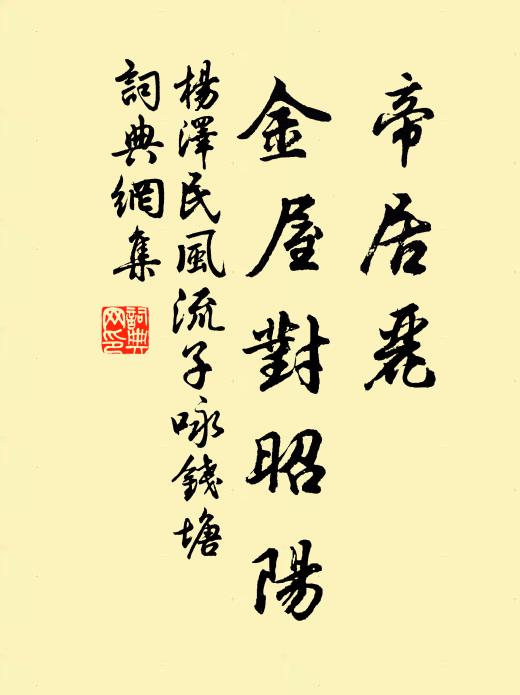 帝居麗
金屋對昭陽
楊澤民風流子咏錢塘
詞典網集
詞典
网印